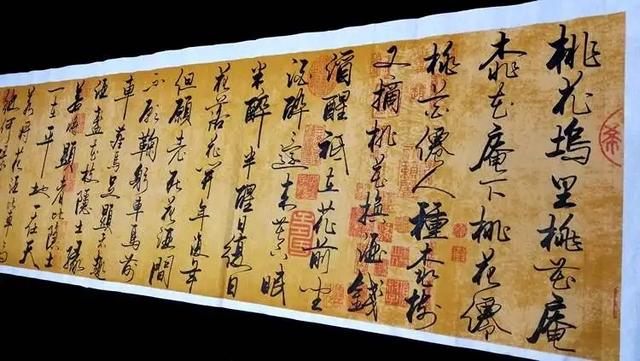 桃花塢里桃花庵
桃花庵下桃花僊
桃花僊人種桃樹
又摘桃花換酒錢
酒醒祇在花前坐
酒醉還来花下眠
半醉半醒日復日
花落花開年復年
但願老死花酒間
不願鞠躬車馬前
車塵馬足顯者趣
酒盞花枝隱士緣
若將顯者比隱士
一在平地一在天
若將花酒比車馬